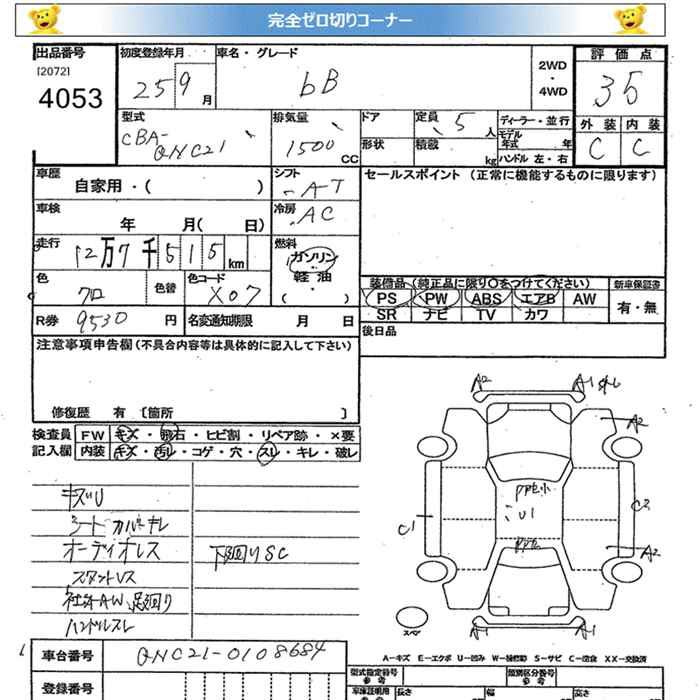 完全ゼロ切りコーナー
出品番号 初度登録年月 車名・グレード 2WD・4WD 評価点
[2072]
4053 25 9月 bB 35
型式 排気量 ドア 定員 5人 ディーラー・並行 外装 内装
CBA-QNC21 1500CC 形状 積載 kg モデル年式 年 ハンドル 左・右 C C
車歴 自家用・( ) シフト AT セールスポイント (正常に機能するものに限ります)
車検 年 月( 日) 冷房 AC
走行 12万7千515km 燃料 ガソリン・軽油( )
色 クロ 色替 色コード X07 装備品(純正品に限り○をつけてください) 新車保証書
PS PW ABS エアB AW 有・無
SR ナビ TV カワ
R券 9530円 名変通知期限 月 日 後日品
注意事項申告欄(不具合内容等は具体的に記入して下さい)
修復歴 有 [箇所 ]
検査員 FW キズ・飛石・ヒビ割・リペア跡・×要
記入欄 内装 キズ・汚レ・コゲ・穴・スレ・キレ・破レ
キズU
シートカバーキレ
オーディオレス 下回りSC
スタットレス
社外AW、足回り
ハンドルスレ
A2 A1
A2
U1
C1 C2
A2
A1 A1
スペア
A-キズ E-エクボ U-凹み W-補修跡 S-サビ C-腐食 XX-交換済
車台番号 QNC21-0108684 型式指定番号 参考 類別区分番号 参考
登録番号 車庫証明用 参考 長さ 幅 高さ